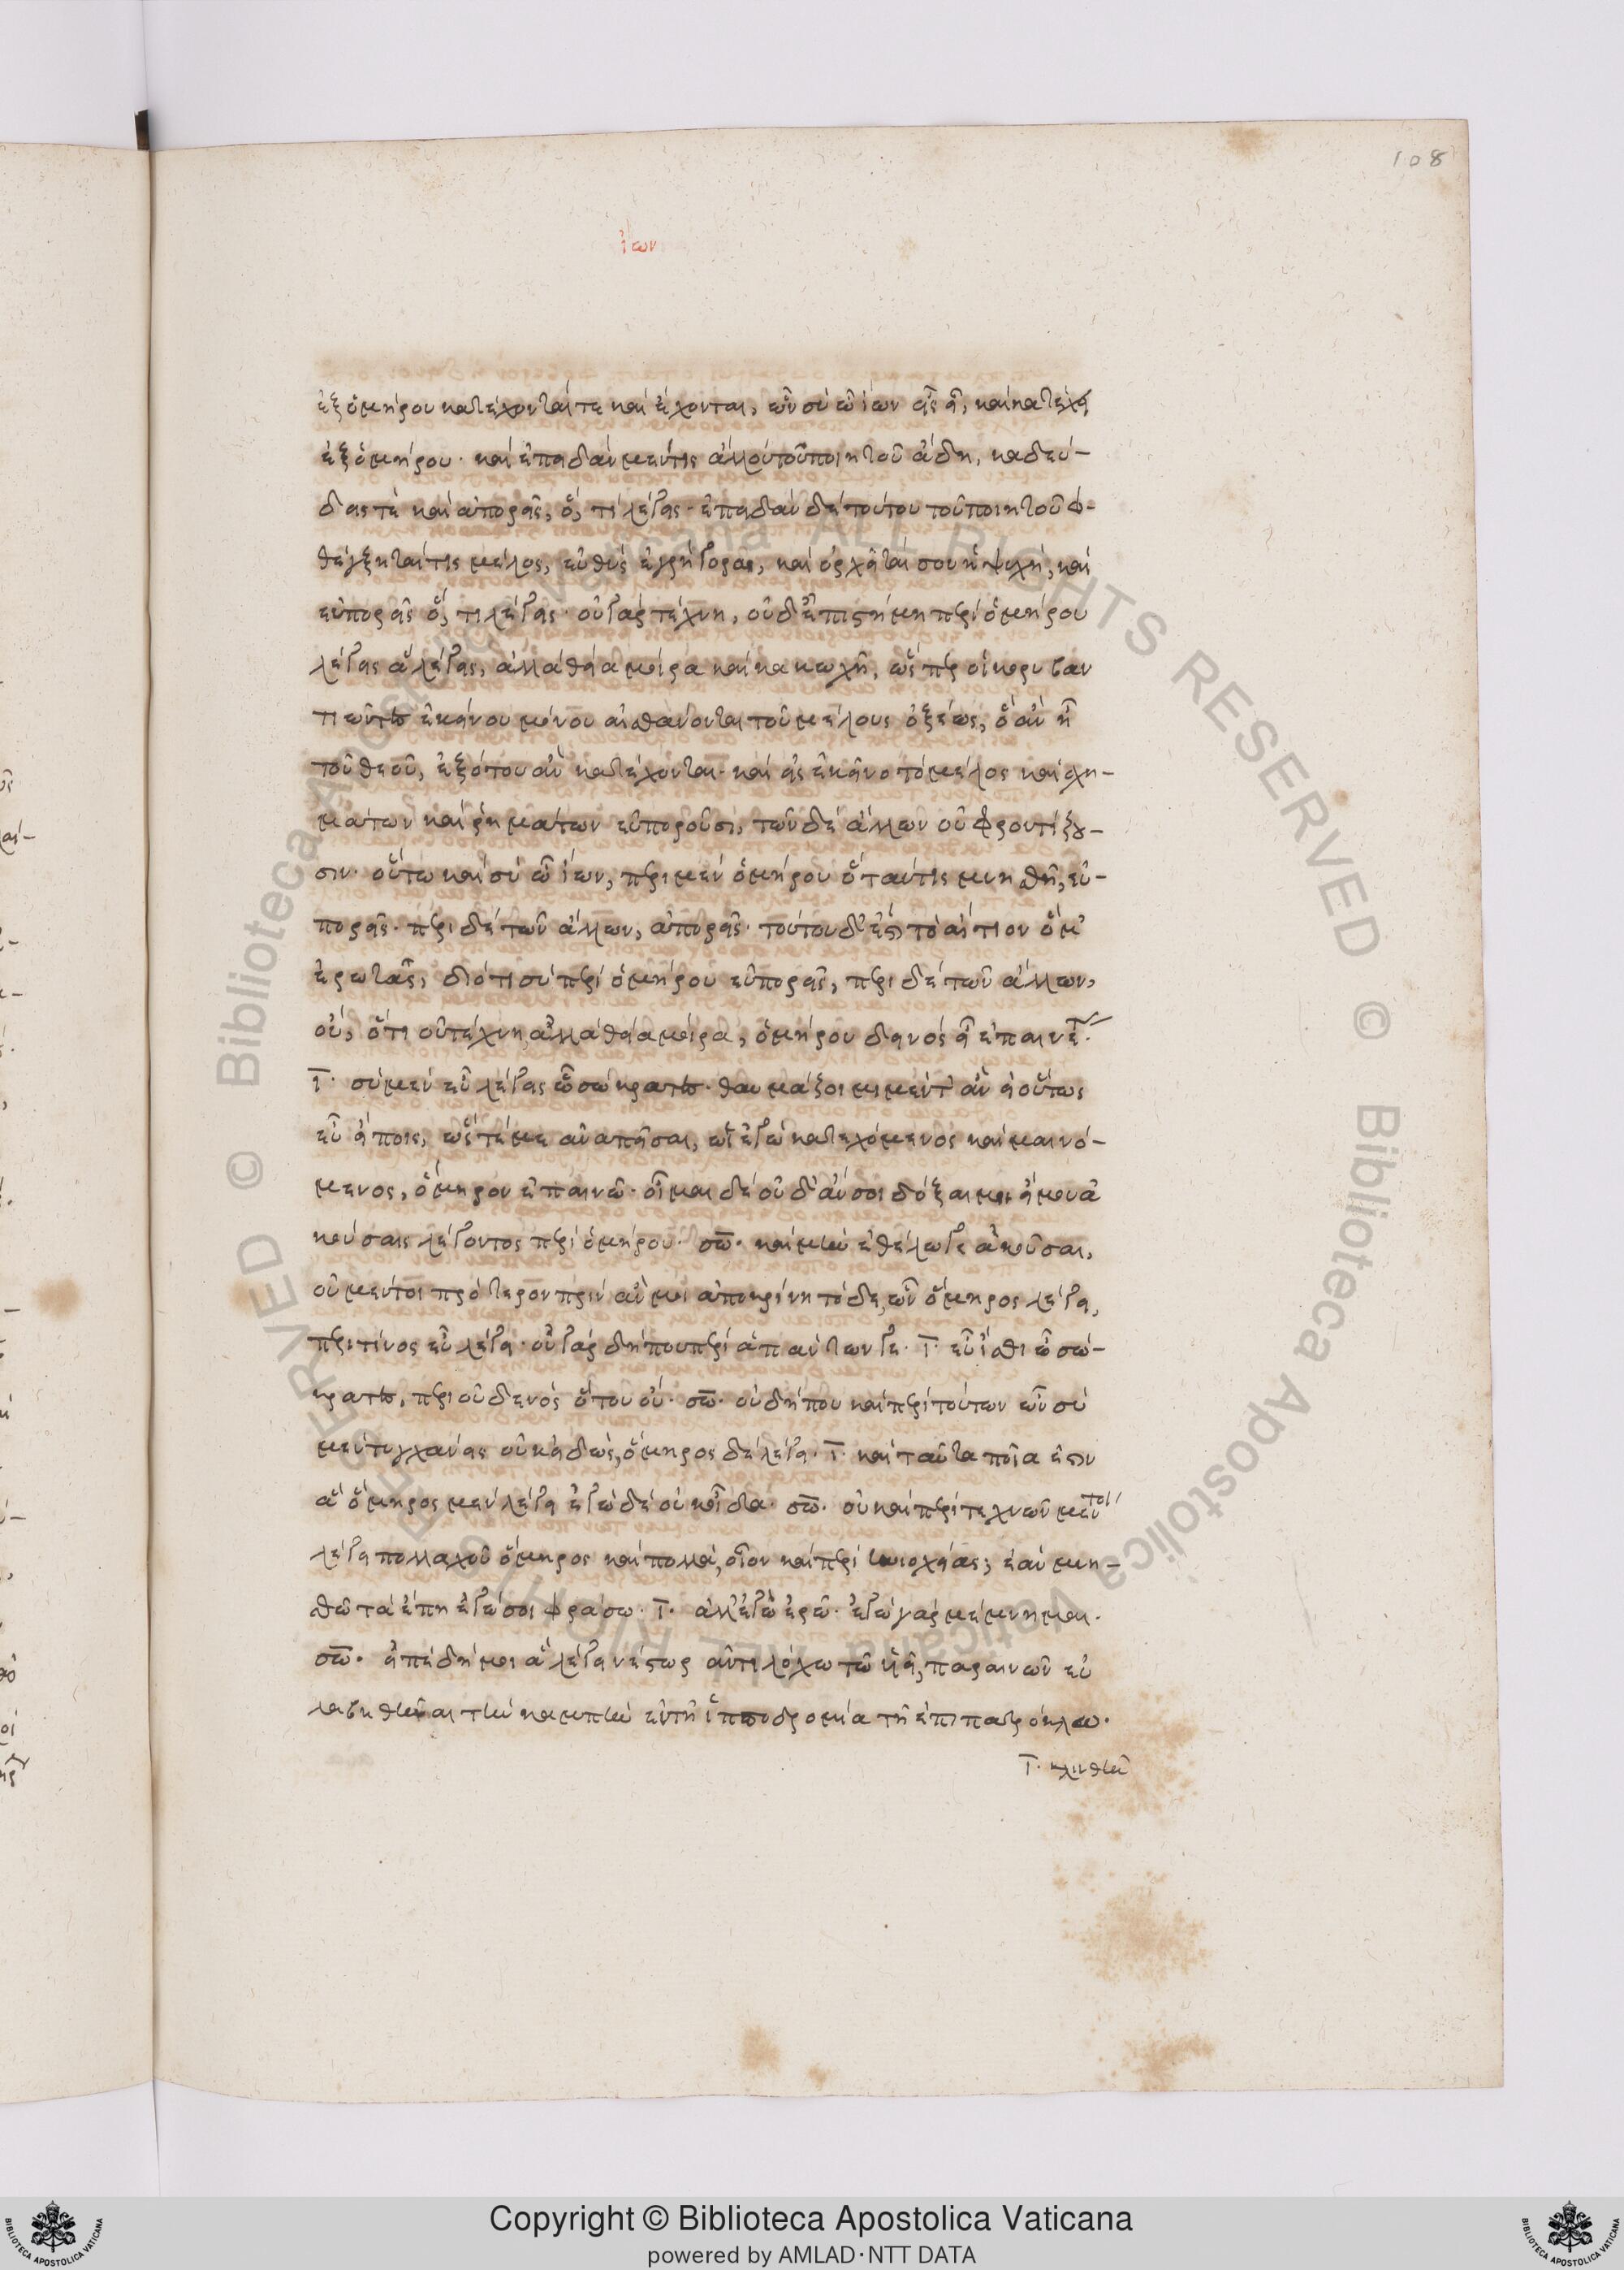 108
ἴων
ἐξ ὁμήρου κατέχονταί τε καὶ ἔχονται, ὧν σὺ ὦ ἴων εἷς εἶ, καὶ κατέχει
ἐξ ὁμήρου· καὶ ἐπειδὰν μέν τις ἄλλου του ποιητοῦ ἄδη, καθεύ-
δεις τὲ καὶ ἀπορεῖς, ὅ, τι λέγεις· ἐπειδὰν δὲ τούτου τοῦ ποιητοῦ φ-
θέγξηταί τις μέλος, εὐθὺς ἐγρήγορας, καὶ ὀρχεῖταί σου ἡ ψυχὴ, καὶ
εὐπορεῖς ὅ, τι λέγεις· οὐ γὰρ τέχνη, οὐδ' ἐπιστήμη περὶ ὁμήρου
λέγεις ἃ λέγεις, ἀλλὰ θεία μοίρα καὶ κακωχῆ, ὥσπερ οἱ κορυβαν
τιῶντες ἐκείνου μόνου αἰσθάνονται τοῦ μέλους ὀξέως, ὃ ἂν ἦ
τοῦ θεοῦ, ἐξ ὅτου ἂν κατέχονται· καὶ εἰς ἐκεῖνο τὸ μέλος καὶ σχη-
μάτων καὶ ῥημάτων εὐποροῦσι, τῶν δὲ ἄλλων οὐ φροντίζου-
σιν· οὕτω καὶ σὺ ὦ ἴων, περὶ μὲν ὁμήρου ὅταν τις μνησθῆ, εὐ-
πορεῖς· περὶ δὲ τῶν ἄλλων, ἀπορεῖς· τούτου δ' ἐστὶ τὸ αἴτιον ὅ μ'
ἐρωτᾷς, διότι σὺ περὶ ὁμήρου εὐπορεῖς, περὶ δὲ τῶν ἄλλων,
οὔ, ὅτι οὐ τέχνη, ἀλλὰ θεία μοίρα, ὁμήρου δεινὸς εἶ ἐπαινέτης.
Ι· σὺ μὲν εὖ λέγεις ὦ σώκρατες· θαυμάζοιμι μέντ' ἂν εἰ οὕτως
εὖ εἴποις, ὥστέ με ἀναπεῖσαι, ὡς ἐγὼ κατεχόμενος καὶ μαινό-
μενος, ὅμηρον ἐπαινῶ· οἶμαι δὲ οὐδ' ἄν σοι δόξαιμι εἴ μου ἀ
κούσαις λέγοντος περὶ ὁμήρου· σω· καὶ μὴν ἐθέλω γε ἀκοῦσαι,
οὐ μέντοι πρότερον πρὶν ἄν μοι ἀποκρίνη τόδε, ὧν ὅμηρος λέγει,
περὶ τίνος εὖ λέγει· οὐ γὰρ δήπου περὶ ἁπάντων γε. Ι· εὖ ἴσθι ὦ σώ-
κρατες, περὶ οὐδενὸς ὅτου οὔ· σω· οὐ δήπου καὶ περὶ τούτων ὧν σὺ
μὲν τυγχάνεις οὐκ εἰδὼς, ὅμηρος δὲ λέγει· Ι· καὶ ταῦτα ποῖά ἐστιν
ἃ ὅμηρος μὲν λέγει ἐγὼ δὲ οὐκ οἶδα· σω· οὐ καὶ περὶ τεχνῶν μέντοι
λέγει πολλαχοῦ ὅμηρος καὶ πολλά, οἷον καὶ περὶ ἡνιοχείας; ἐὰν μνη-
σθῶ τὰ ἔπη ἐγώ σοι φράσω· Ι· ἀλλ' ἐγὼ ἐρῶ· ἐγὼ γὰρ μέμνημαι·
σω· εἰπὲ δή μοι ἃ λέγει νέστωρ ἀντιλόχω τῶ υἱεῖ, παραινῶν εὐ
λαβηθῆναι τὴν καμπὴν ἐν τῆ ἱπποδρομία τῆ ἐπὶ πατρόκλω·
Ι· κλινθῆ